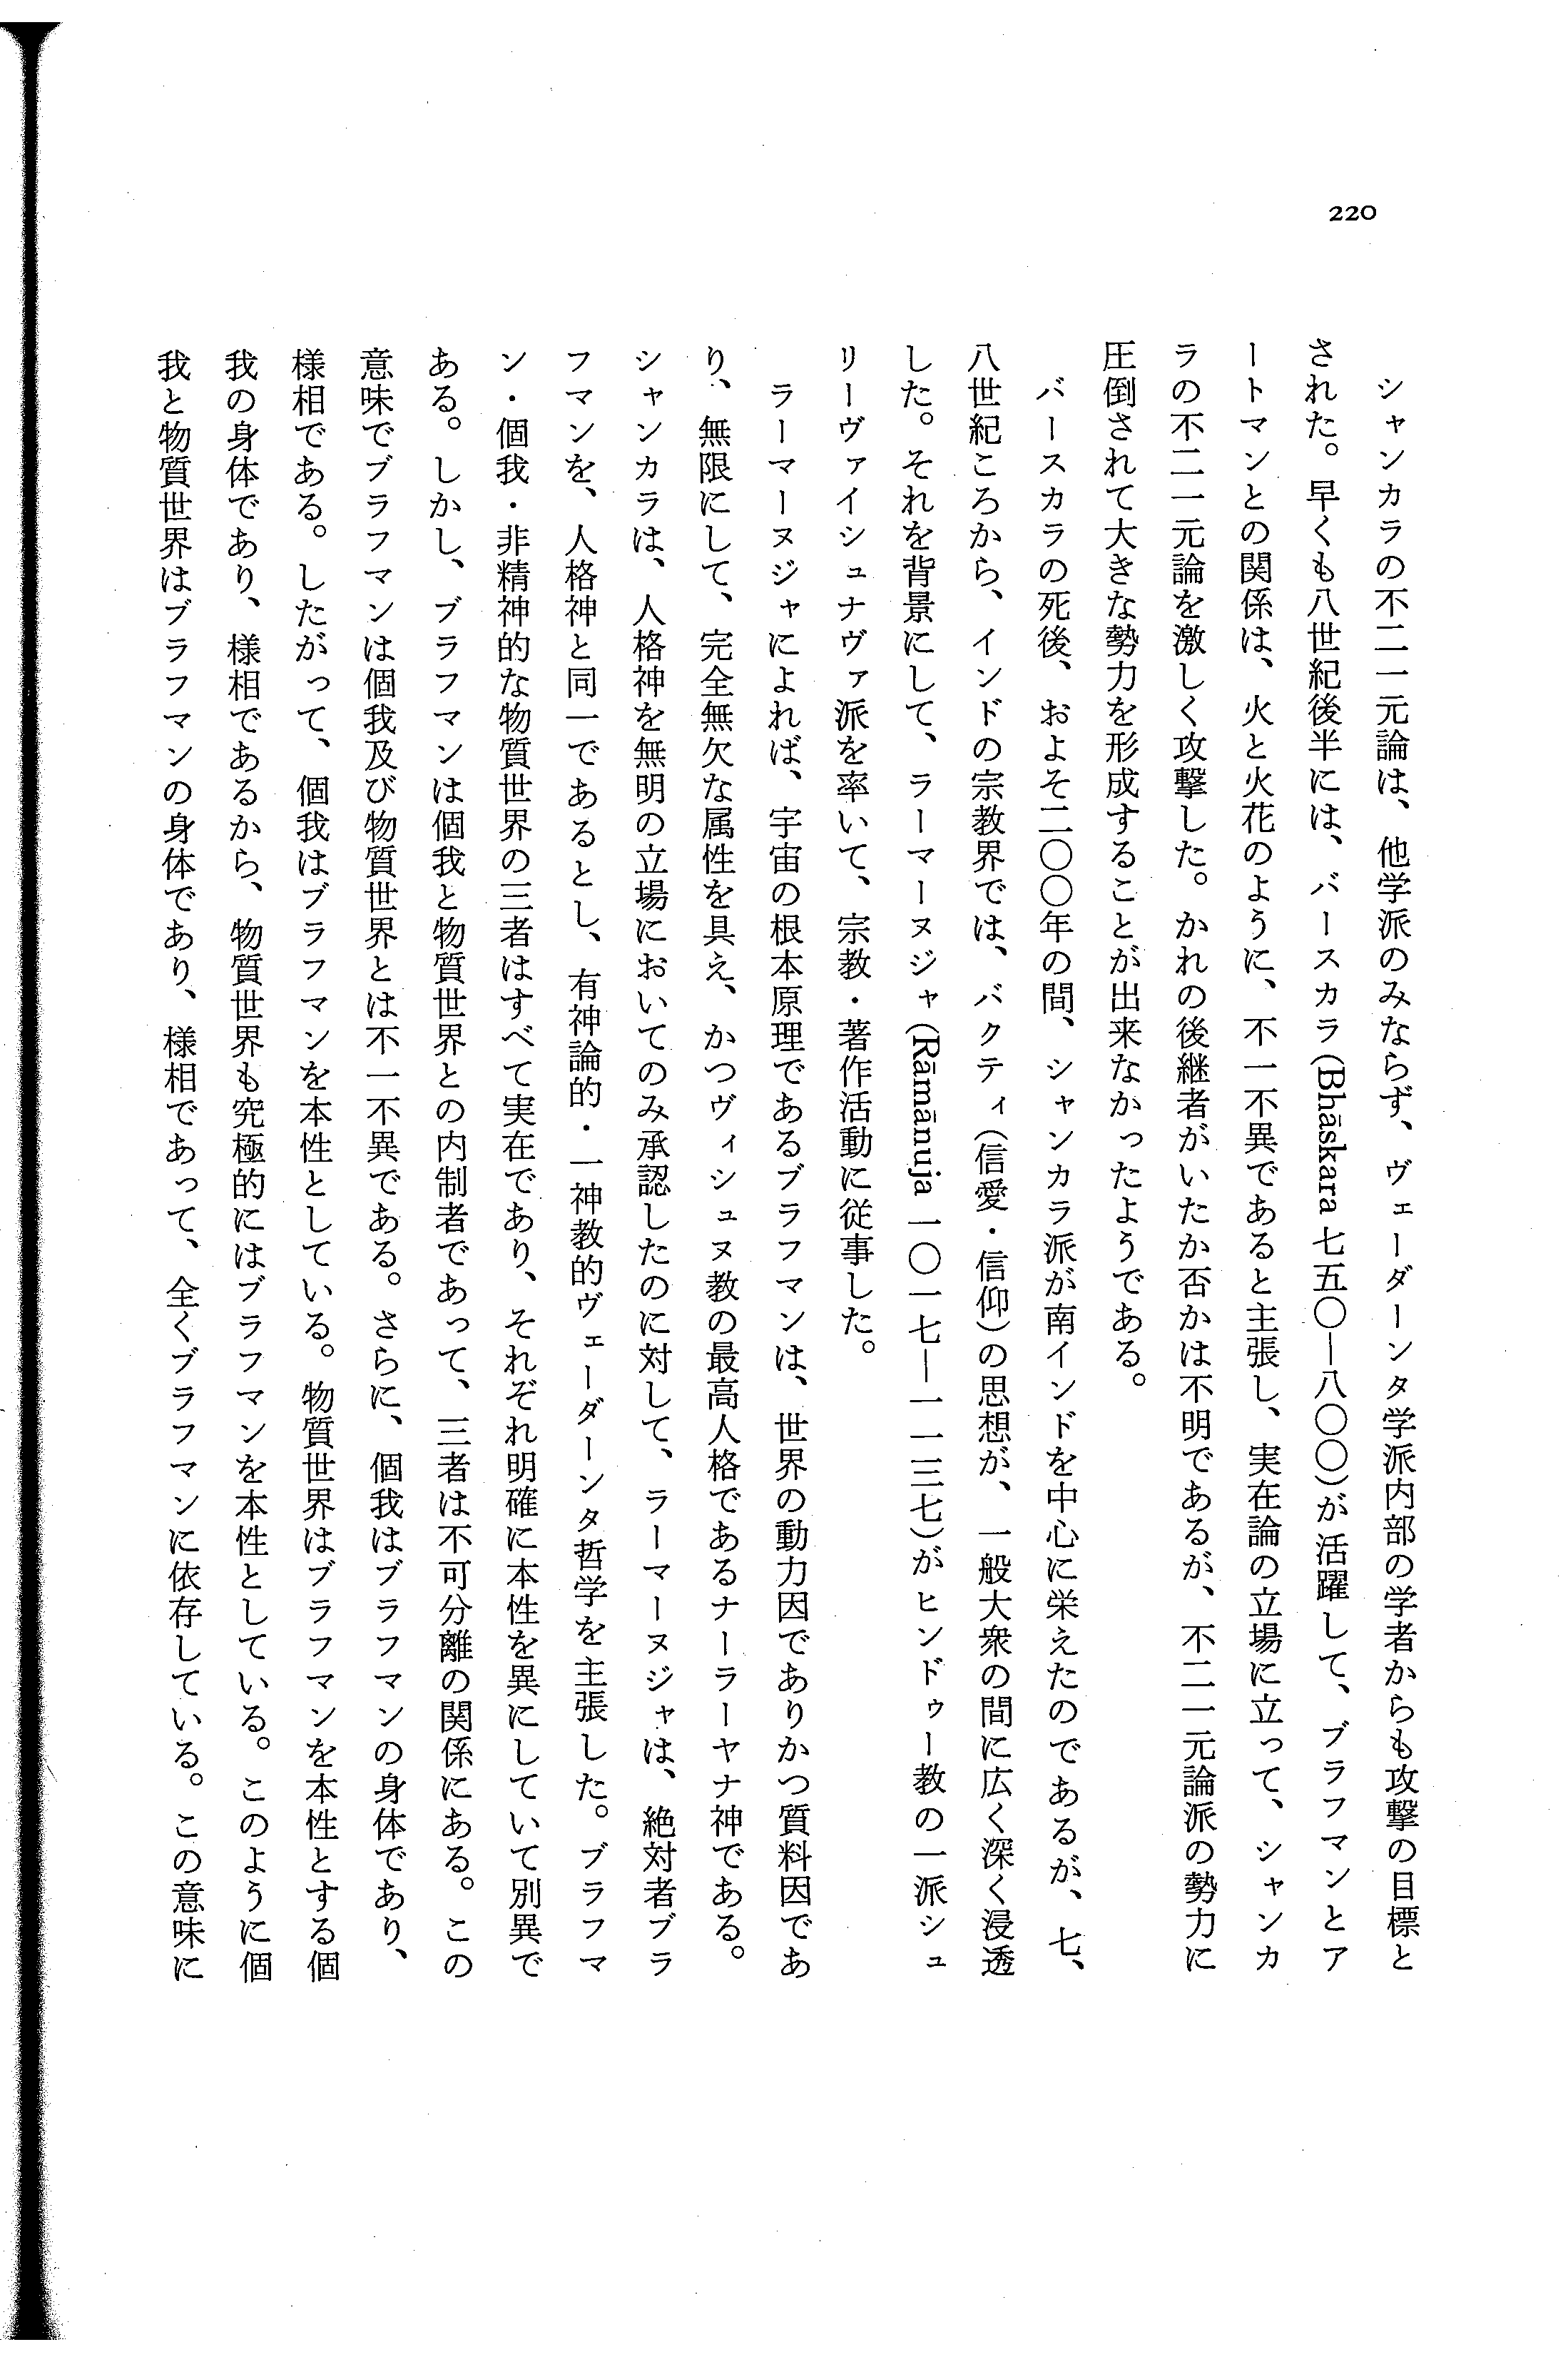 220
シャンカラの不二一元論は、他学派のみならず、ヴェーダーンタ学派内部の学者からも攻撃の目標と
された。早くも八世紀後半には、バースカラ(Bhāskara 七五〇―八〇〇)が活躍して、ブラフマンとア
ートマンとの関係は、火と火花のように、不一不異であると主張し、実在論の立場に立って、シャンカ
ラの不二一元論を激しく攻撃した。かれの後継者がいたか否かは不明であるが、不二一元論派の勢力に
圧倒されて大きな勢力を形成することが出来なかったようである。
バースカラの死後、およそ二〇〇年の間、シャンカラ派が南インドを中心に栄えたのであるが、七、
八世紀ころから、インドの宗教界では、バクティ(信愛・信仰)の思想が、一般大衆の間に広く深く浸透
した。それを背景にして、ラーマーヌジャ(Rāmānuja 一〇一七―一一三七)がヒンドゥー教の一派シュ
リーヴァイシュナヴァ派を率いて、宗教・著作活動に従事した。
ラーマーヌジャによれば、宇宙の根本原理であるブラフマンは、世界の動力因でありかつ質料因であ
り、無限にして、完全無欠な属性を具え、かつヴィシュヌ教の最高人格であるナーラーヤナ神である。
シャンカラは、人格神を無明の立場においてのみ承認したのに対して、ラーマーヌジャは、絶対者ブラ
フマンを、人格神と同一であるとし、有神論的・一神教的ヴェーダーンタ哲学を主張した。ブラフマ
ン・個我・非精神的な物質世界の三者はすべて実在であり、それぞれ明確に本性を異にしていて別異で
ある。しかし、ブラフマンは個我と物質世界との内制者であって、三者は不可分離の関係にある。この
意味でブラフマンは個我及び物質世界とは不一不異である。さらに、個我はブラフマンの身体であり、
様相である。したがって、個我はブラフマンを本性としている。物質世界はブラフマンを本性とする個
我の身体であり、様相であるから、物質世界も究極的にはブラフマンを本性としている。このように個
我と物質世界はブラフマンの身体であり、様相であって、全くブラフマンに依存している。この意味に